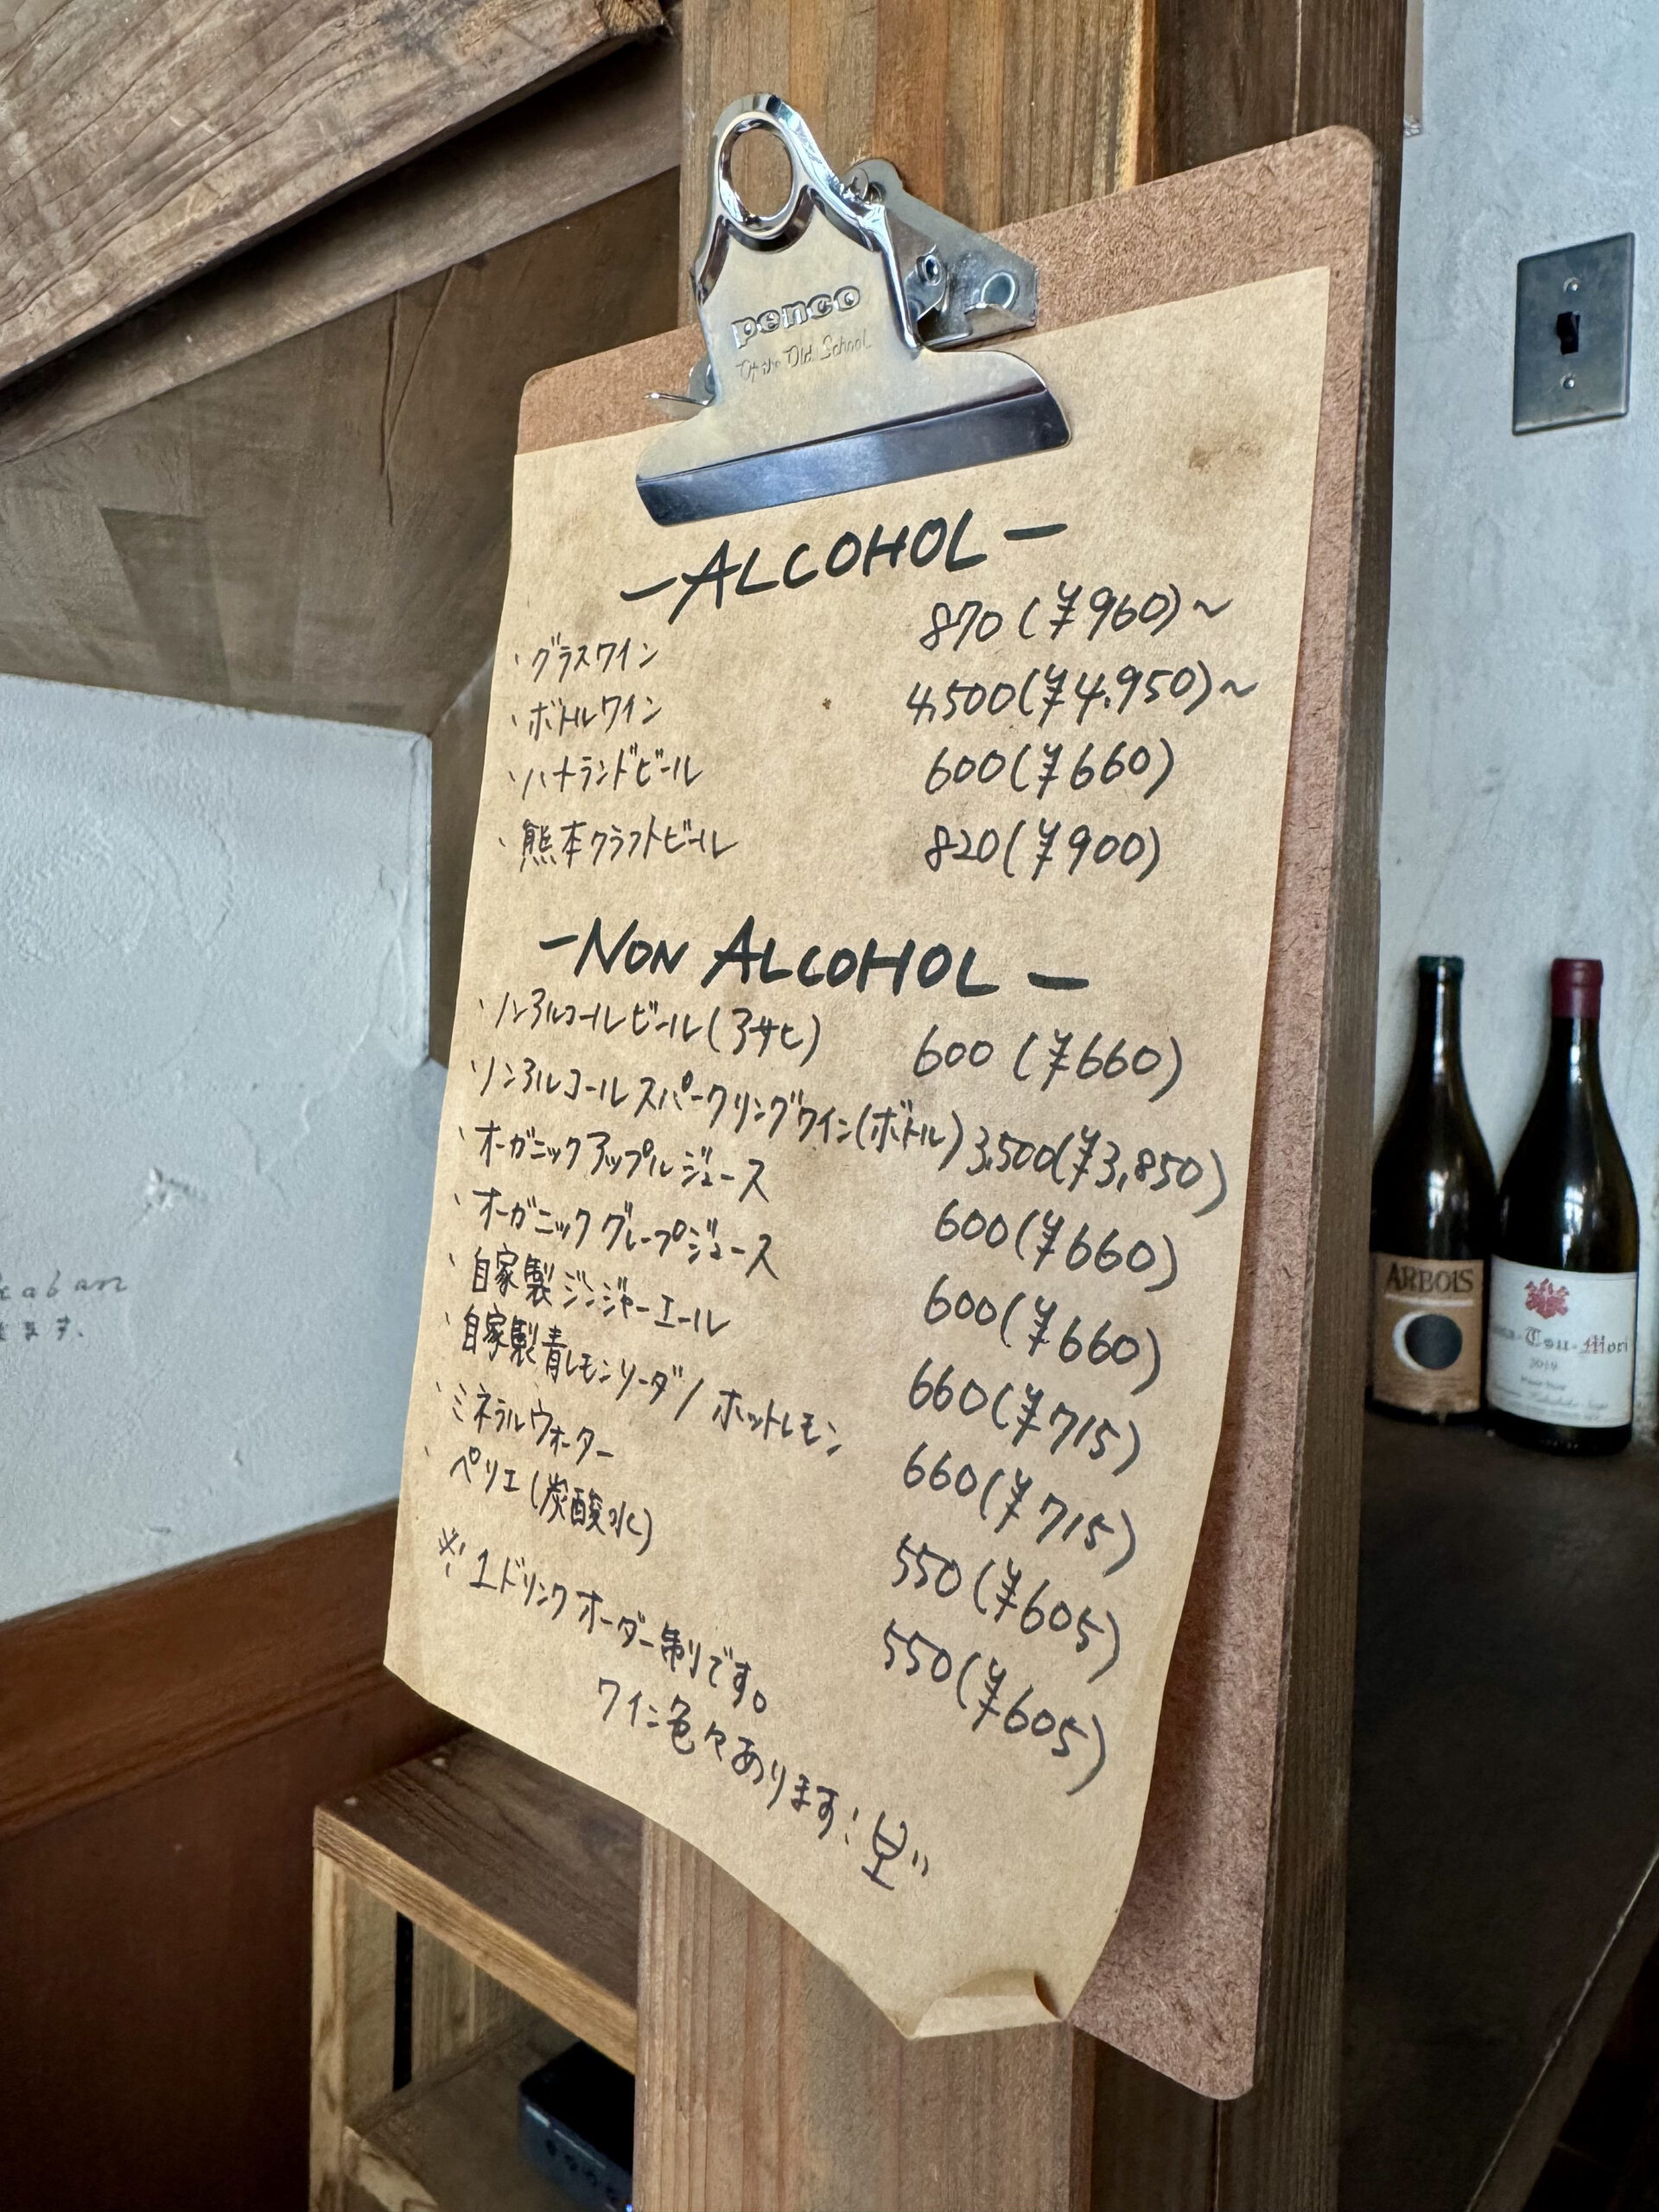 penco
Of the Old School
－ALCOHOL－
・グラスワイン 870(¥960)〜
・ボトルワイン 4,500(¥4,950)〜
・ハートランドビール 600(¥660)
・熊本クラフトビール 820(¥900)
－NON ALCOHOL－
・ノンアルコールビール(アサヒ) 600(¥660)
・ノンアルコールスパークリングワイン(ボトル) 3,500(¥3,850)
・オーガニックアップルジュース 600(¥660)
・オーガニックグレープジュース 600(¥660)
・自家製ジンジャーエール 660(¥715)
・自家製青レモンソーダ/ホットレモン 660(¥715)
・ミネラルウォーター 550(¥605)
・ペリエ(炭酸水) 550(¥605)
※1ドリンクオーダー制です。
ワイン色々あります!
ARBOIS
-Tsu-Mori
2019
aban
ます.